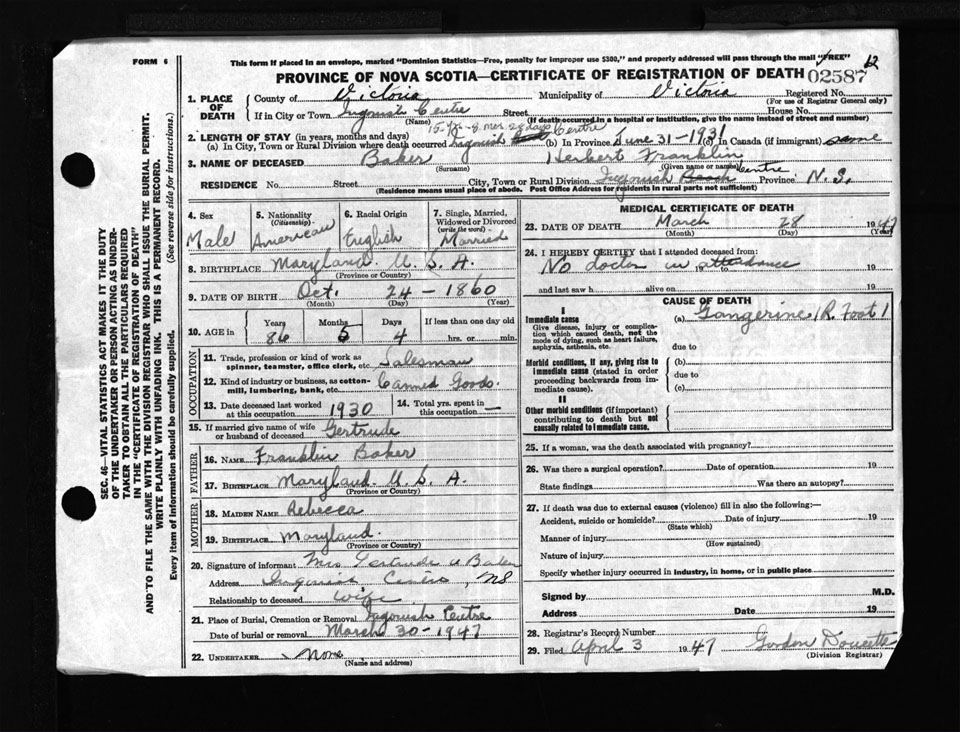 FORM 6
This form if placed in an envelope, marked "Dominion Statistics—Free, penalty for improper use $300," and properly addressed will pass through the mail "FREE"
12
PROVINCE OF NOVA SCOTIA—CERTIFICATE OF REGISTRATION OF DEATH 02587
SEC. 46—VITAL STATISTICS ACT MAKES IT THE DUTY
OF THE UNDERTAKER OR PERSON ACTING AS UNDER-
TAKER TO OBTAIN ALL THE PARTICULARS REQUIRED
IN THE "CERTIFICATE OF REGISTRATION OF DEATH"
AND TO FILE THE SAME WITH THE DIVISION REGISTRAR WHO SHALL ISSUE THE BURIAL PERMIT.
WRITE PLAINLY WITH UNFADING INK. THIS IS A PERMANENT RECORD.
Every item of Information should be carefully supplied. (See reverse side for instructions.)
1. PLACE OF DEATH County of Victoria Municipality of Victoria Registered No.
(For use of Registrar General only)
If in City or Town Ingonish Centre Street House No.
(Name) (If death occurred in a hospital or institution, give the name instead of street and number)
15-yrs-8 mos 28 days
2. LENGTH OF STAY (in years, months and days)
(a) In City, Town or Rural Division where death occurred Ingonish Centre (b) In Province June 31-1931 (c) In Canada (if immigrant) same
3. NAME OF DECEASED Baker Herbert Franklin
(Surname) (Given name or names)
RESIDENCE No. Street City, Town or Rural Division Ingonish Beach Centre Province N.S.
(Residence means usual place of abode. Post Office Address for residents in rural parts not sufficient)
4. Sex Male
5. Nationality (Citizenship) American
6. Racial Origin English
7. Single, Married, Widowed or Divorced (write the word) Married
8. BIRTHPLACE Maryland U.S.A.
(Province or Country)
9. DATE OF BIRTH Oct. 24-1860
(Month) (Day) (Year)
10. AGE in Years 86 Months 5 Days 4 If less than one day old hrs. or min.
OCCUPATION
11. Trade, profession or kind of work as spinner, teamster, office clerk, etc. Salesman
12. Kind of industry or business, as cotton-mill, lumbering, bank, etc. Canned Goods
13. Date deceased last worked at this occupation 1930
14. Total yrs. spent in this occupation —
15. If married give name of wife or husband of deceased Gertrude
FATHER
16. NAME Franklin Baker
17. BIRTHPLACE Maryland U.S.A.
(Province or Country)
MOTHER
18. MAIDEN NAME Rebecca
19. BIRTHPLACE Maryland.
(Province or Country)
20. Signature of informant Mrs Gertrude A Baker
Address Ingonish Centre, NS
Relationship to deceased wife
21. Place of Burial, Cremation or Removal Ingonish Centre
Date of burial or removal March 30-1947
22. UNDERTAKER None
(Name and address)
MEDICAL CERTIFICATE OF DEATH
23. DATE OF DEATH March 28 1947
(Month) (Day) (Year)
24. I HEREBY CERTIFY that I attended deceased from:
No doctor in attendance 19 to 19
and last saw h alive on 19
CAUSE OF DEATH
I
Immediate cause (a) Gangerine R. Foot 1
Give disease, injury or complication which caused death, not the mode of dying, such as heart failure, asphyxia, asthenia, etc.
due to
Morbid conditions, if any, giving rise to immediate cause (stated in order proceeding backwards from immediate cause).
(b)
due to
(c)
II
Other morbid conditions (if important) contributing to death but not causally related to immediate cause.
25. If a woman, was the death associated with pregnancy?
26. Was there a surgical operation? Date of operation 19
State findings Was there an autopsy?
27. If death was due to external causes (violence) fill in also the following:
Accident, suicide or homicide? Date of injury 19
(State which)
Manner of injury
(How sustained)
Nature of injury
Specify whether injury occurred in industry, in home, or in public place
Signed by M.D.
Address Date 19
28. Registrar's Record Number
29. Filed April 3 1947 Gordon Doucette
(Division Registrar)